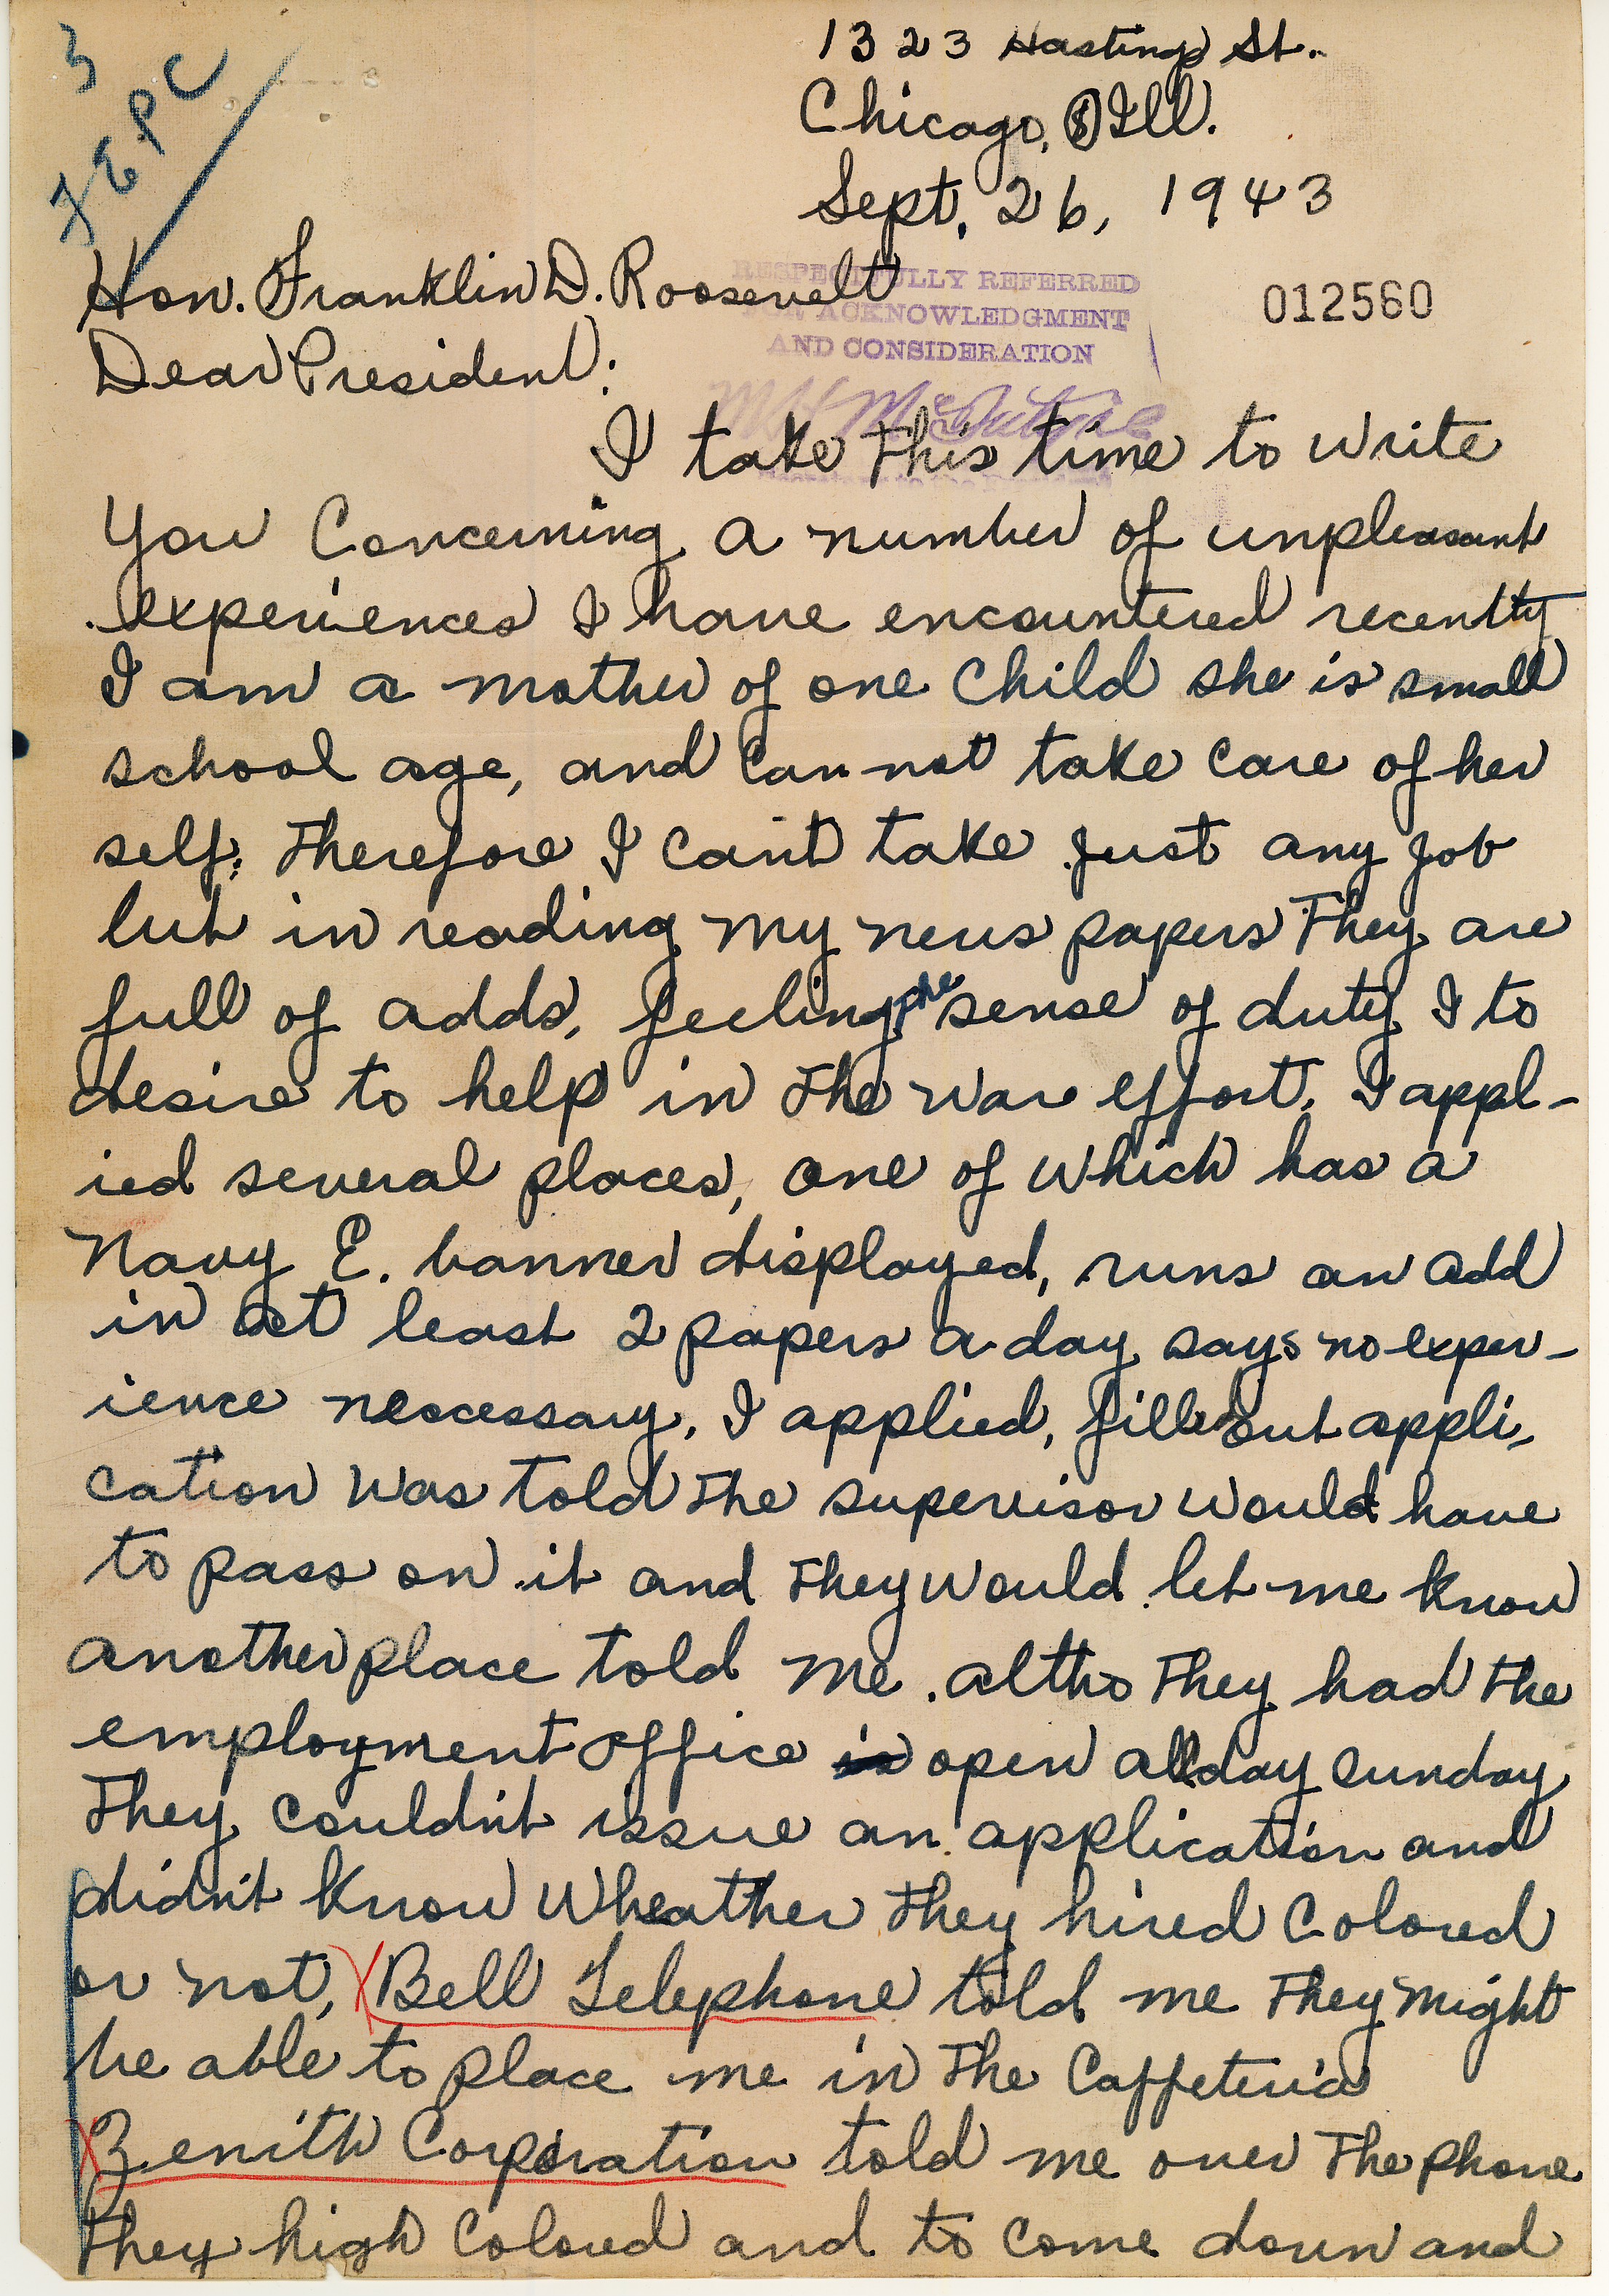 3
FEPC
1323 Hastings St.
Chicago, (8) Ill.
Sept. 26, 1943
Hon. Franklin D. Roosevelt
RESPECTFULLY REFERRED
FOR ACKNOWLEDGMENT
AND CONSIDERATION
012560
Dear President:
I take this time to write
you concerning a number of unpleasant
experiences I have encountered recently
I am a mother of one child she is small
school age, and can not take care of her
self; therefore I can't take just any job
but in reading my news papers they are
full of adds, feeling the sense of duty I to
desire to help in the war effort. I appl-
ied several places, one of which has a
Navy E. banner displayed, runs an add
in at least 2 papers a day says no exper-
ience nescessary. I applied, filled out appli-
cation was told the supervisor would have
to pass on it and they would let me know
another place told me. altho they had the
employment office open all day sunday
they couldn't issue an application and
didn't know wheather they hired Colored
or not, Bell Telephone told me they might
be able to place me in the Caffeteria
Zenith Corporation told me over the phone
they high Colored and to come down and